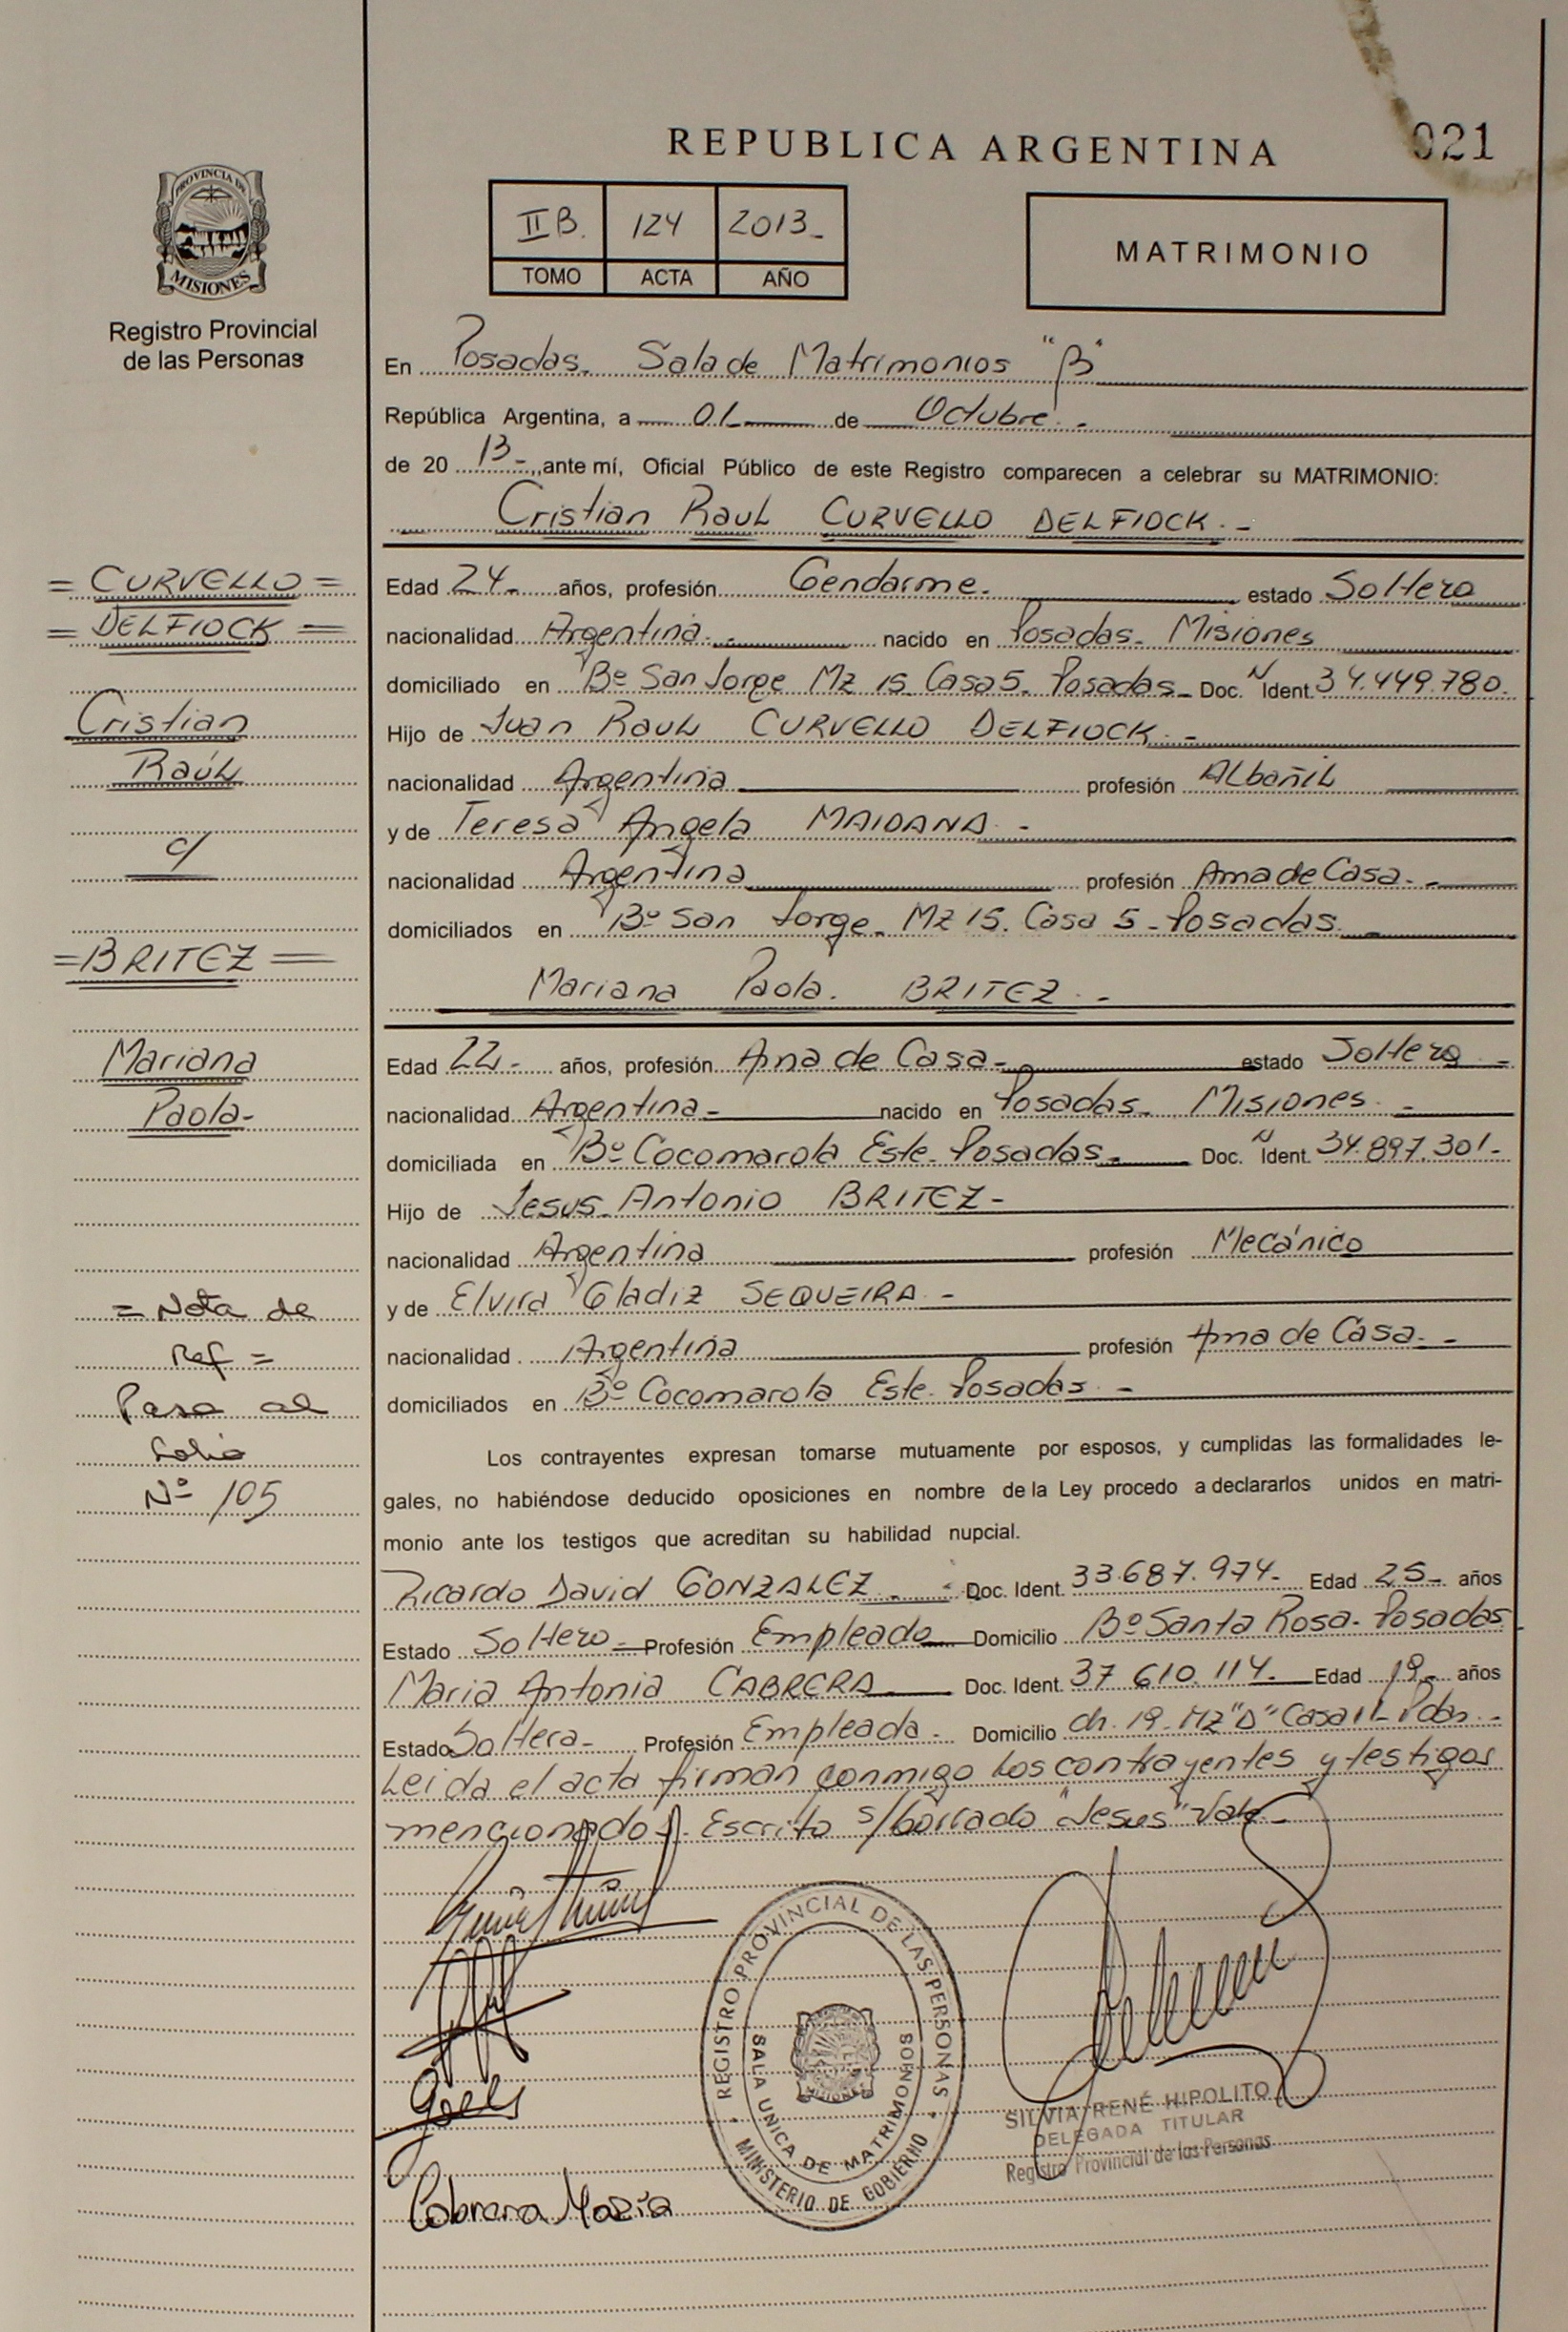 REPUBLICA ARGENTINA
021
PROVINCIA DE
MISIONES
Registro Provincial
de las Personas
II B. 124 2013-
TOMO ACTA AÑO
MATRIMONIO
En Posadas. Sala de Matrimonios "B"
República Argentina, a 01 de Octubre.-
de 20 13-, ante mí, Oficial Público de este Registro comparecen a celebrar su MATRIMONIO:
Cristian Raul CURVELLO DELFIOCK.-
Edad 24- años, profesión Gendarme. estado Soltero
nacionalidad Argentina.- nacido en Posadas- Misiones
domiciliado en Bº San Jorge Mz 15 Casa 5. Posadas- Doc. N Ident. 34.449.780.
Hijo de Juan Raul CURVELLO DELFIOCK.-
nacionalidad Argentina profesión Albañil
y de Teresa Angela MAIDANA.-
nacionalidad Argentina profesión Ama de Casa.-
domiciliados en Bº San Jorge- Mz 15. Casa 5- Posadas.-
Mariana Paola. BRITEZ.-
Edad 22- años, profesión Ama de Casa- estado Soltera-
nacionalidad Argentina- nacido en Posadas- Misiones.-
domiciliada en Bº Cocomarola Este- Posadas- Doc. N Ident. 34.897.301-
Hijo de Jesus Antonio BRITEZ-
nacionalidad Argentina profesión Mecánico
y de Elvira Gladiz SEQUEIRA.-
nacionalidad Argentina profesión Ama de Casa.-
domiciliados en Bº Cocomarola Este- Posadas.-
Los contrayentes expresan tomarse mutuamente por esposos, y cumplidas las formalidades le-
gales, no habiéndose deducido oposiciones en nombre de la Ley procedo a declararlos unidos en matri-
monio ante los testigos que acreditan su habilidad nupcial.
Ricardo David GONZALEZ.- Doc. Ident. 33.687.974- Edad 25- años
Estado Soltero- Profesión Empleado Domicilio Bº Santa Rosa- Posadas
Maria Antonia CABRERA Doc. Ident. 37 610.114- Edad 19- años
Estado Soltera- Profesión Empleada- Domicilio ch. 19- Mz "D" Casa 11- Pdas.-
Leida el acta firman conmigo los contrayentes y testigos
mencionados. Escrito s/borrado "Jesus" Vale-
= CURVELLO =
= DELFIOCK =
Cristian
Raúl
c/
= BRITEZ =
Mariana
Paola-
= Nota de
Ref =
Pasa al
folio
Nº 105
REGISTRO PROVINCIAL DE LAS PERSONAS
SALA UNICA DE MATRIMONIOS
MINISTERIO DE GOBIERNO
SILVIA RENÉ HIPOLITO
DELEGADA TITULAR
Registro Provincial de las Personas
Cabrera Maria